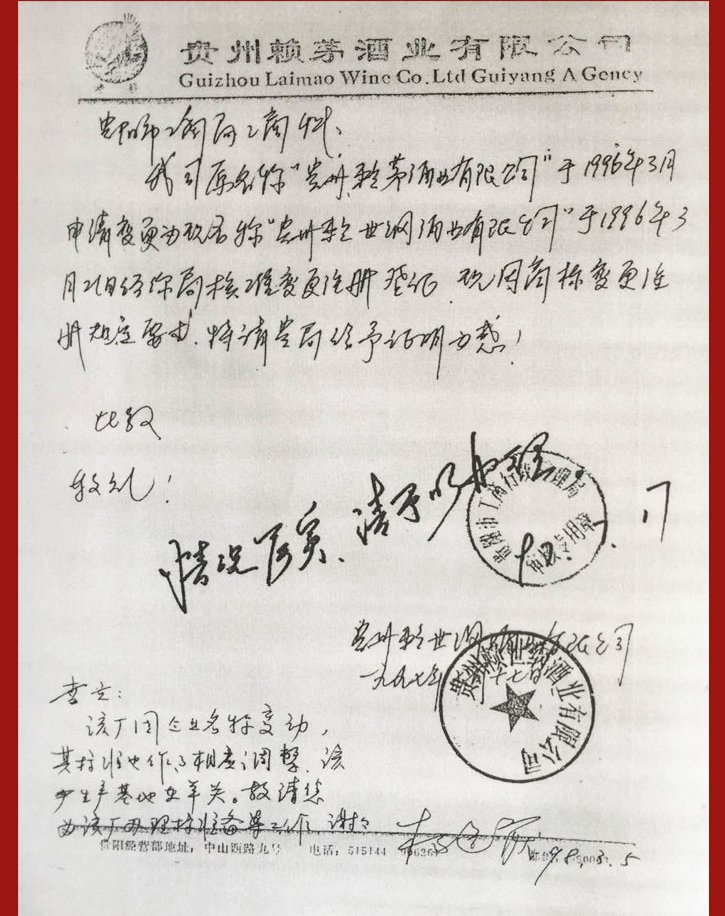 贵州赖茅酒业有限公司
Guizhou Laimao Wine Co.Ltd Guiyang A Gency
贵阳市工商局工商科、
我司原名称"贵州赖茅酒业有限公司"于1996年3月
申请变更为现名称"贵州赖世纲酒业有限公司"于1996年3
月21日经你局核准变更注册登记,现因商标变更注
册规定要求,特请贵局给予证明为感!
此致
敬礼!
情况属实、请予以办理
贵阳市工商行政管理局
贵州赖世纲酒业有限公司
一九九七年 十七日
贵州赖世纲酒业有限公司
该厂因企业名称变动,
其标准也作了相应调整,该
生产基地在 。敬请您
为该厂办理标准备案工作,谢谢
贵阳经营部地址:中山西路九号 电话:515144
98.03.5